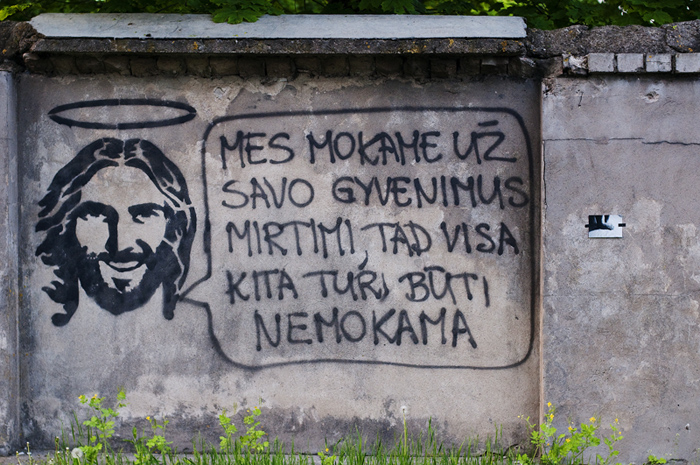 MES MOKAME UŽ
SAVO GYVENIMUS
MIRTIMI, TAD VISA
KITA TURI BŪTI
NEMOKAMA